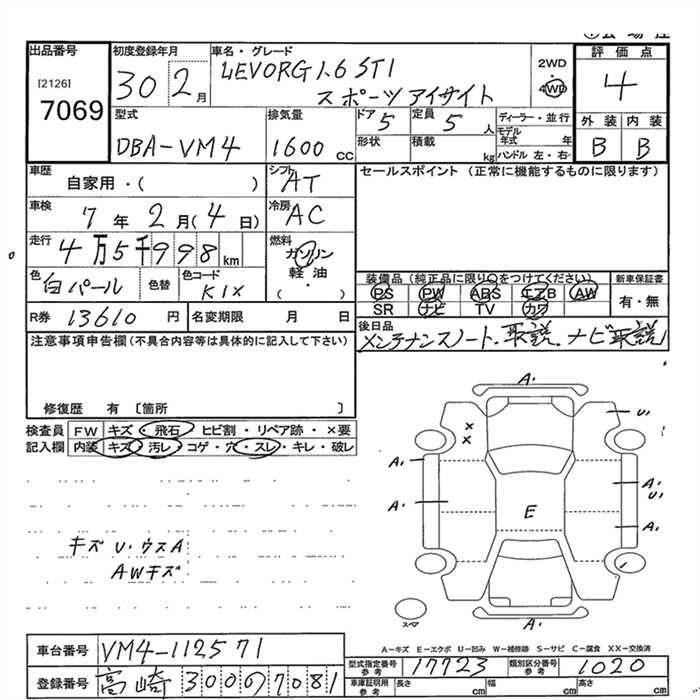 出品番号
[2126]
7069
初度登録年月
30 2月
車名・グレード
LEVORG 1.6 STI
スポーツ アイサイト
2WD
4WD
評価点
4
外装 内装
B B
型式
DBA-VM4
排気量
1600 CC
ドア
5
定員
5 人
形状
積載
kg
ディーラー・並行
モデル年式 年
ハンドル 左・右
車歴
自家用・( )
シフト
AT
車検
7年 2月(4日)
冷房
AC
走行
4万5千998 km
燃料
ガソリン
軽油・
( )
色
白パール
色替
色コード
K1X
R券 13610 円
名変期限 月 日
セールスポイント (正常に機能するものに限ります)
装備品(純正品に限り○をつけてください)
PS PW ABS エアB AW
SR ナビ TV カワ
新車保証書
有・無
後日品
メンテナンスノート・取説・ナビ取説
注意事項申告欄(不具合内容等は具体的に記入して下さい)
修復歴 有 〔箇所 〕
検査員記入欄
FW キズ・飛石・ヒビ割・リペア跡・×要
内装 キズ・汚レ・コゲ・穴・スレ・キレ・破レ
キズ U・ウスA
AWキズ
A.
U.
A.
A.
U.
A.
A.
E
A.
スペア
A-キズ E-エクボ U-凹み W-補修跡 S-サビ C-腐食 XX-交換済
車台番号 VM4-112571
登録番号 高崎 300  の 7081
型式指定番号 参考 17723
類別区分番号 参考 1020
車庫証明用 参考
長さ cm
幅 cm
高さ cm